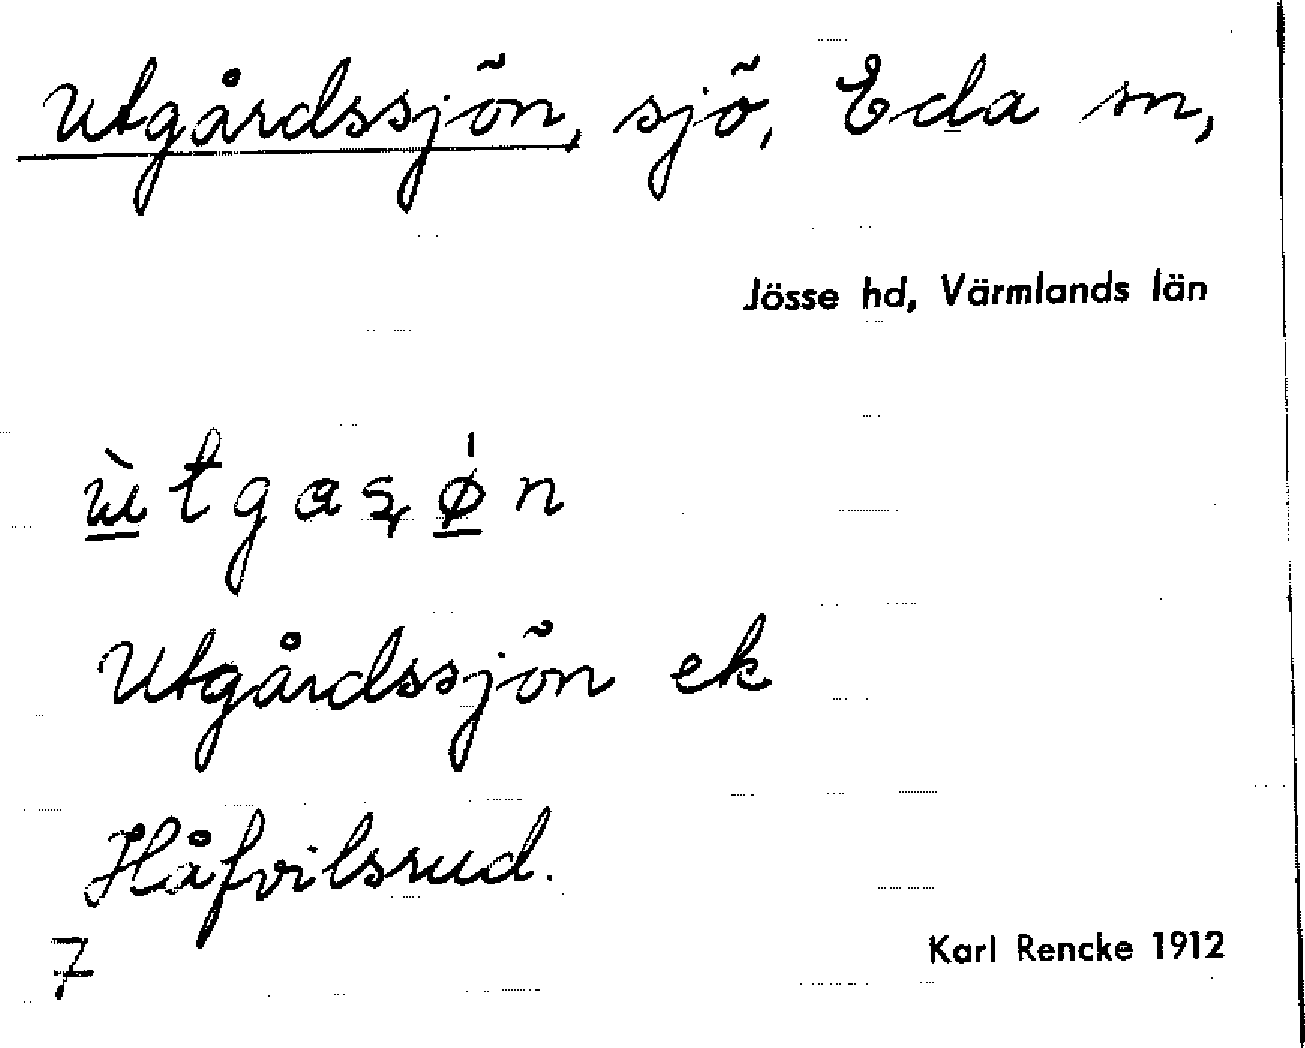 Utgårdssjön, sjö, Eda sn,
Jösse hd, Värmlands län
ùtgaʂø̍n
Utgårdssjön ek
Håfvilsrud.
7
Karl Rencke 1912